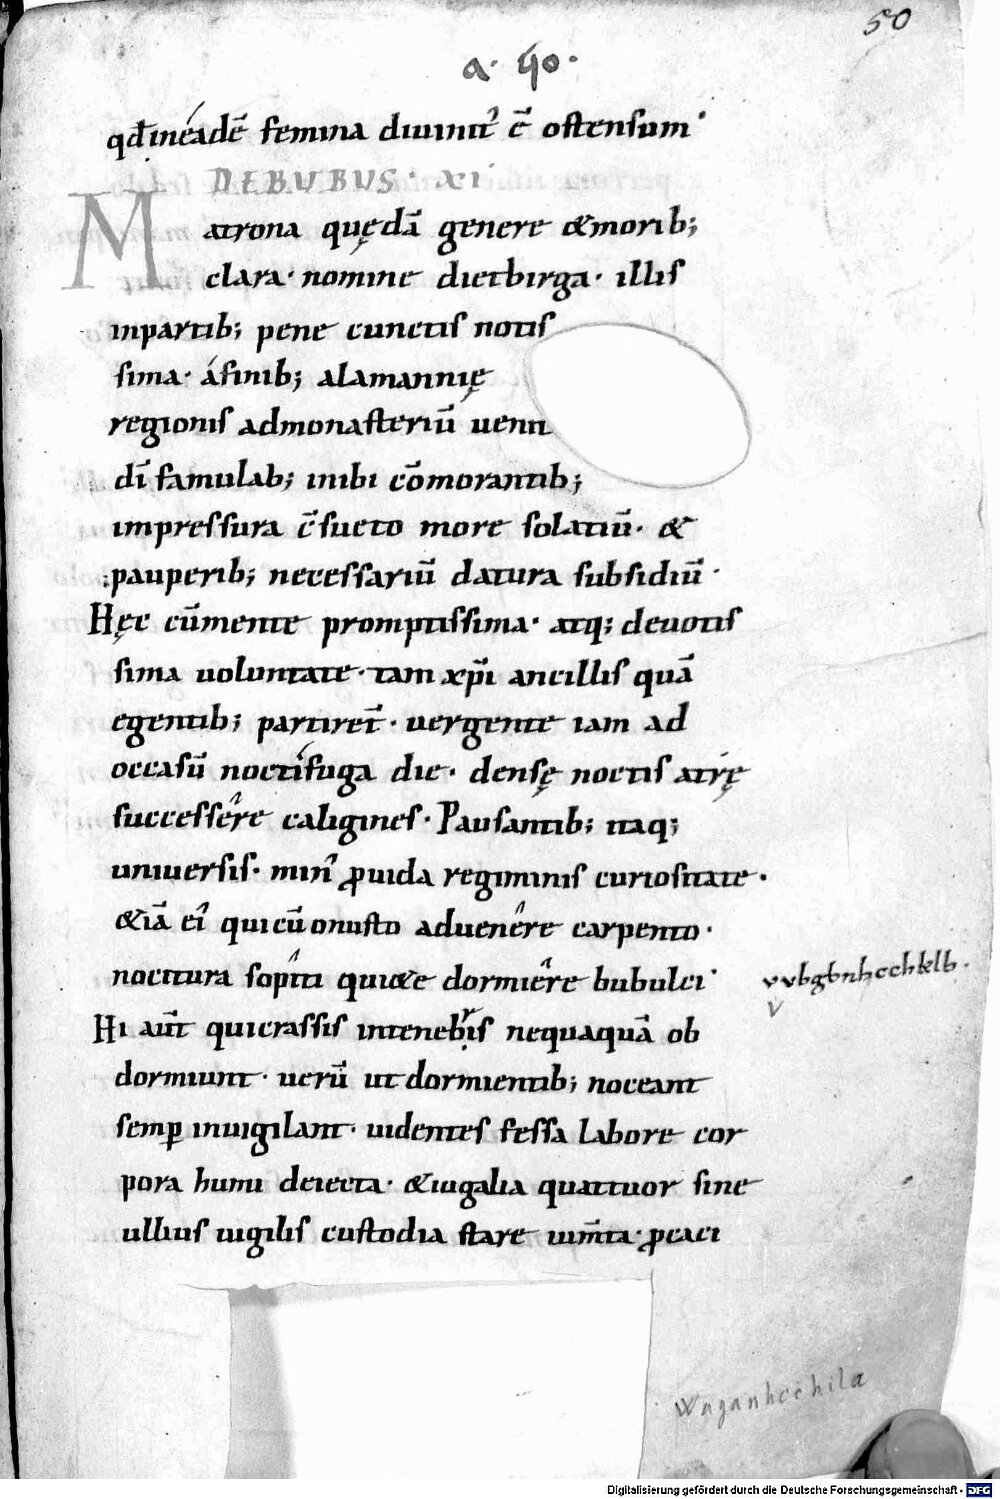 50
a. 40.
qđ in eadē femina diuinit᷒ ē ostensum
DE BUBUS. XI
Matrona quędā genere & morib;
clara. nomine dietbirga. illis
in partib; pene cunctis notis
sima. á finib; alamannię
regionis ad monasteriū uenit
dī famulab; inibi cōmorantib;
impressura c̄sueto more solatiū. &
pauperib; necessariū datura subsidiū.
Hęc cū mente promptissima. atq; deuotis
sima uoluntate. tam xp̄i ancillis quā
egentib; partiret̄. uergente iam ad
occasū noctifuga die. densę noctis atrę
successere caligines. Pausantib; itaq;
uniuersis. min᷒ ꝓuida regiminis curiositate.
&iā ei᷒ qui cū onusto aduenere carpento.
nocitura sopiti qui&e dormiere bubulci
vvbgbnhcchklb.
Hi aūt qui crassis in tenebris nequaquā ob
dormiunt. uerū ut dormientib; noceant
semꝑ inuigilant. uidentes fessa labore cor
pora humi deiecta. & iugalia quattuor sine
ullius uigilis custodia stare ium̄ta. ꝓcaci
Waganhcchila
Digitalisierung gefördert durch die Deutsche Forschungsgemeinschaft - DFG